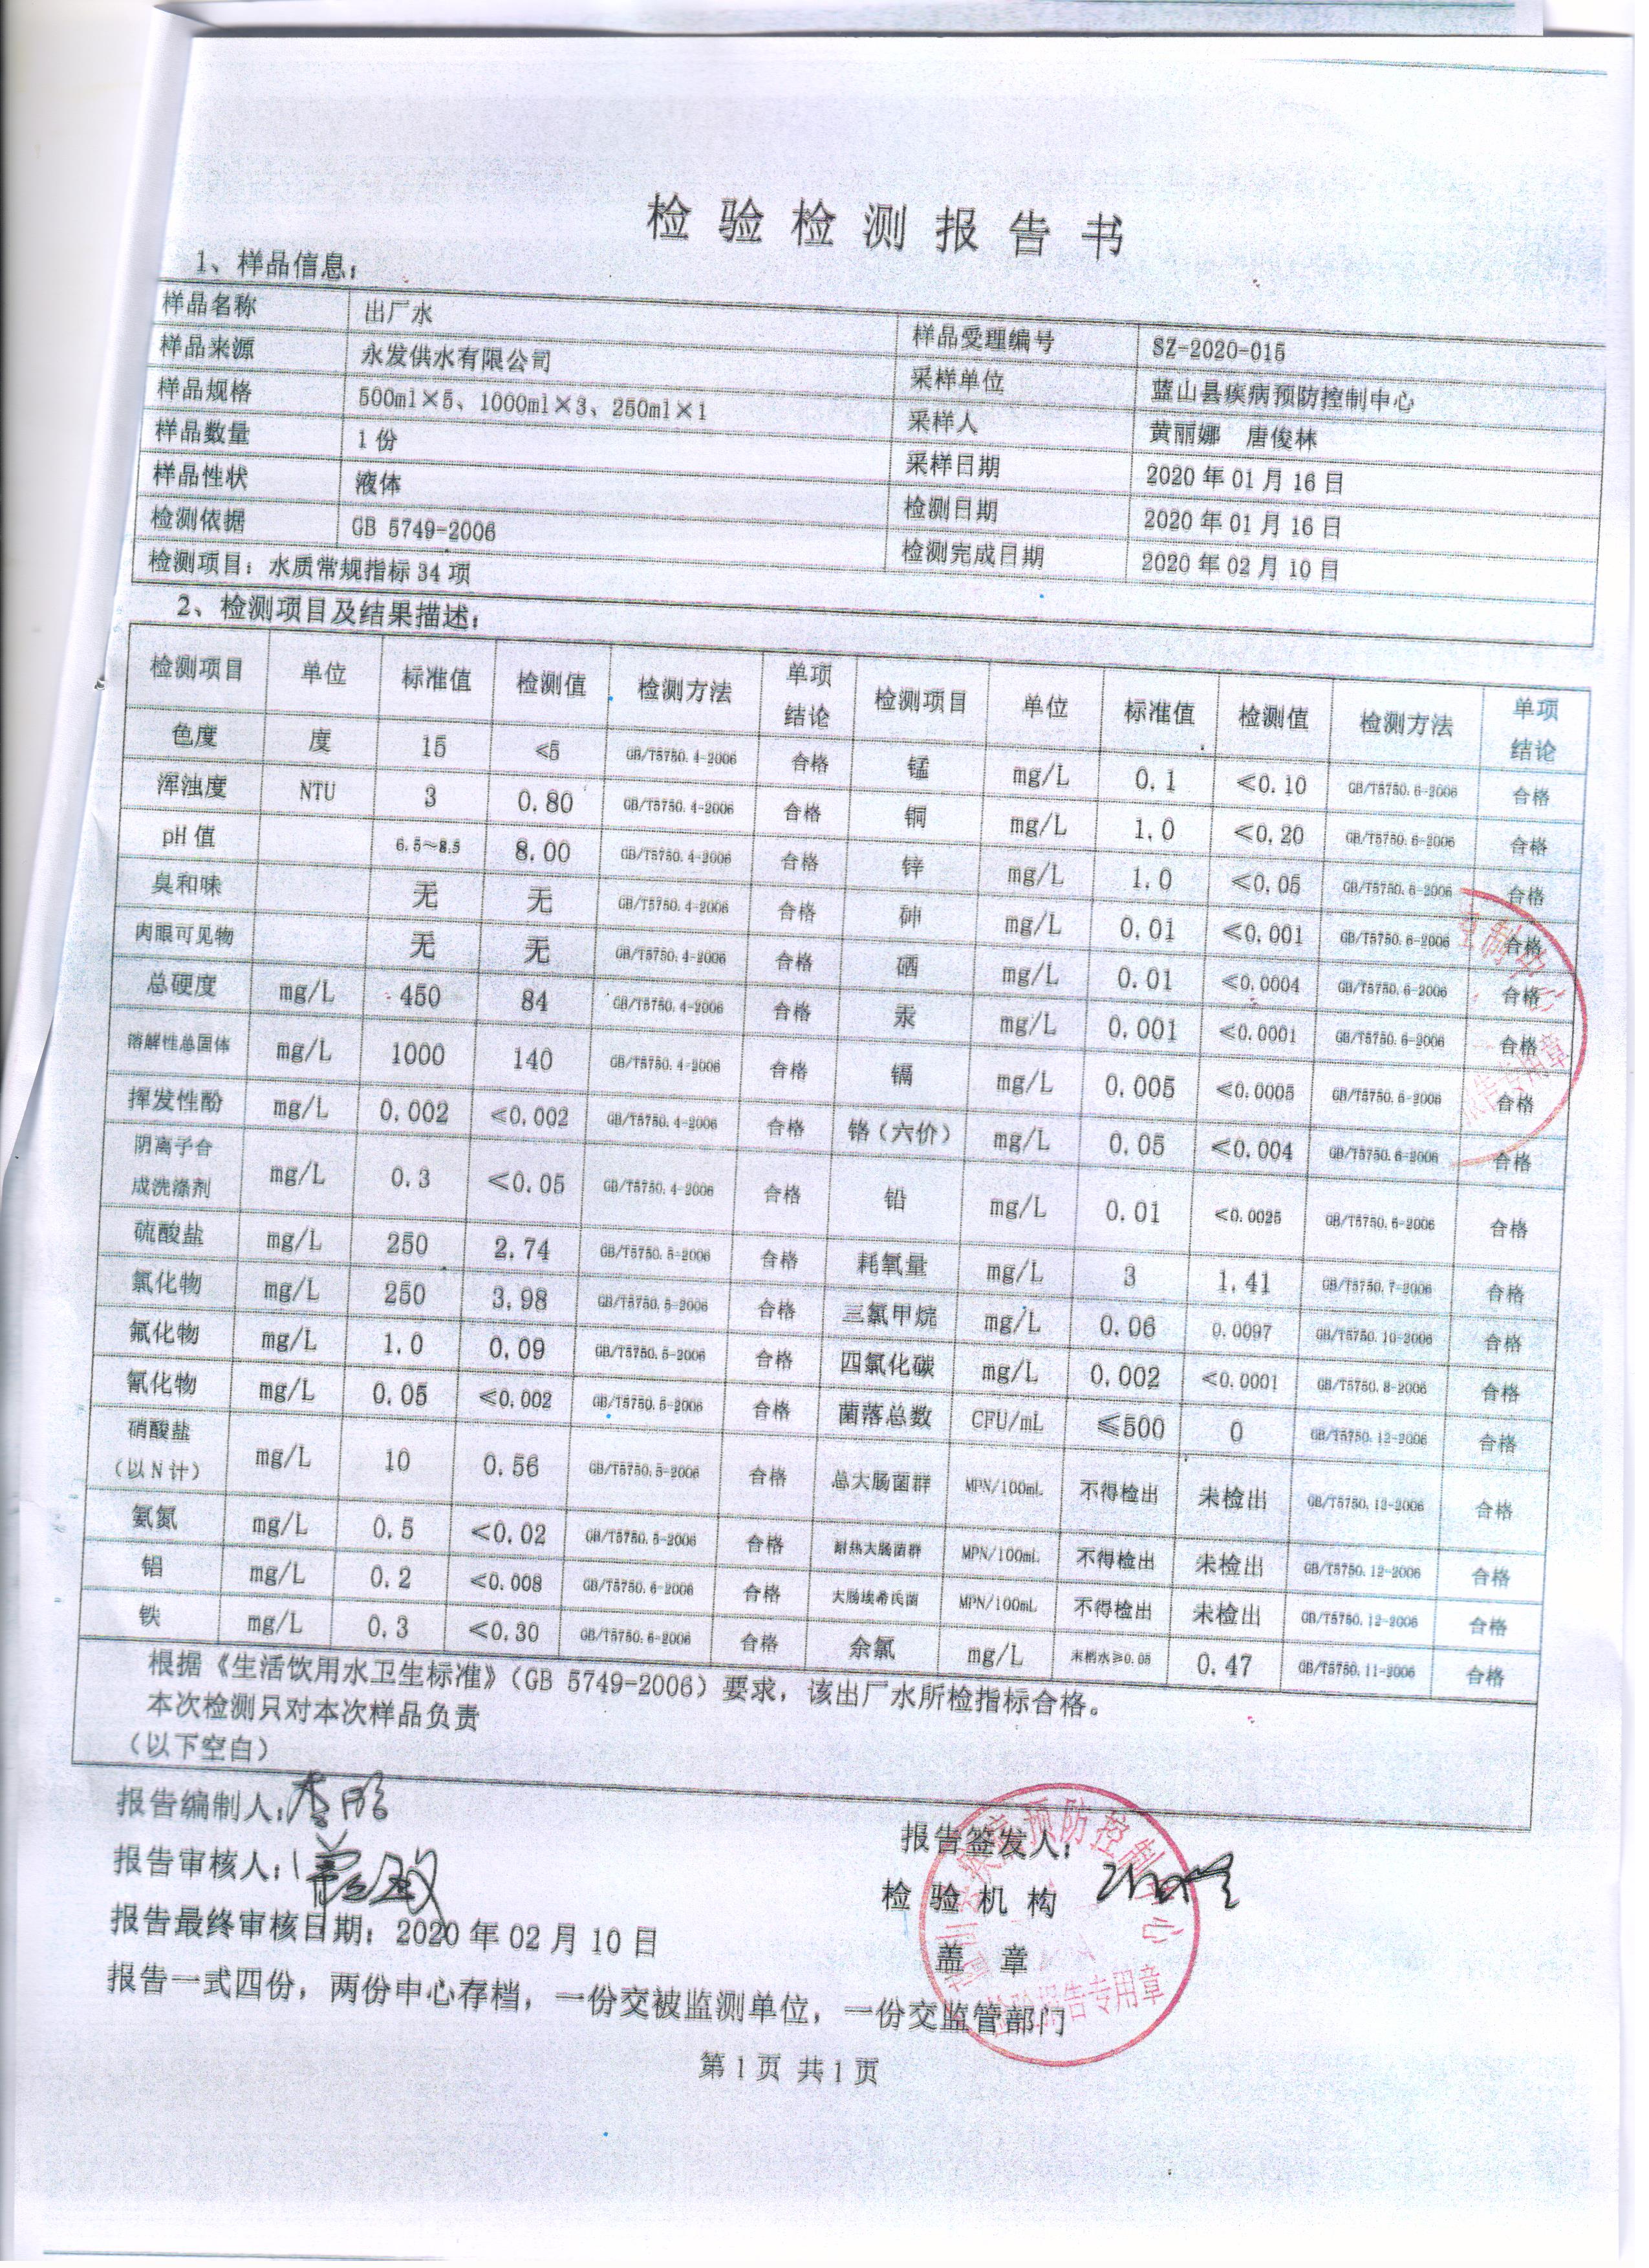 检验检测报告书
1、样品信息：
样品名称 出厂水 样品受理编号 SZ-2020-015
样品来源 永发供水有限公司 采样单位 蓝山县疾病预防控制中心
样品规格 500ml×5、1000ml×3、250ml×1 采样人 黄丽娜 唐俊林
样品数量 1份 采样日期 2020年01月16日
样品性状 液体 检测日期 2020年01月16日
检测依据 GB 5749-2006 检测完成日期 2020年02月10日
检测项目：水质常规指标34项
2、检测项目及结果描述：
检测项目 单位 标准值 检测值 检测方法 单项结论 检测项目 单位 标准值 检测值 检测方法 单项结论
色度 度 15 <5 GB/T5750.4-2006 合格 锰 mg/L 0.1 ≤0.10 GB/T5750.6-2006 合格
浑浊度 NTU 3 0.80 GB/T5750.4-2006 合格 铜 mg/L 1.0 ≤0.20 GB/T5750.6-2006 合格
pH值 6.5～8.5 8.00 GB/T5750.4-2006 合格 锌 mg/L 1.0 ≤0.05 GB/T5750.6-2006 合格
臭和味 无 无 GB/T5750.4-2006 合格 砷 mg/L 0.01 ≤0.001 GB/T5750.6-2006 合格
肉眼可见物 无 无 GB/T5750.4-2006 合格 硒 mg/L 0.01 ≤0.0004 GB/T5750.6-2006 合格
总硬度 mg/L 450 84 GB/T5750.4-2006 合格 汞 mg/L 0.001 ≤0.0001 GB/T5750.6-2006 合格
溶解性总固体 mg/L 1000 140 GB/T5750.4-2006 合格 镉 mg/L 0.005 ≤0.0005 GB/T5750.6-2006 合格
挥发性酚 mg/L 0.002 ≤0.002 GB/T5750.4-2006 合格 铬（六价） mg/L 0.05 ≤0.004 GB/T5750.6-2006 合格
阴离子合成洗涤剂 mg/L 0.3 ≤0.05 GB/T5750.4-2006 合格 铅 mg/L 0.01 ≤0.0025 GB/T5750.6-2006 合格
硫酸盐 mg/L 250 2.74 GB/T5750.5-2006 合格 耗氧量 mg/L 3 1.41 GB/T5750.7-2006 合格
氯化物 mg/L 250 3.98 GB/T5750.5-2006 合格 三氯甲烷 mg/L 0.06 0.0097 GB/T5750.10-2006 合格
氟化物 mg/L 1.0 0.09 GB/T5750.5-2006 合格 四氯化碳 mg/L 0.002 ≤0.0001 GB/T5750.8-2006 合格
氰化物 mg/L 0.05 ≤0.002 GB/T5750.5-2006 合格 菌落总数 CFU/mL ≤500 0 GB/T5750.12-2006 合格
硝酸盐（以N计） mg/L 10 0.56 GB/T5750.5-2006 合格 总大肠菌群 MPN/100mL 不得检出 未检出 GB/T5750.12-2006 合格
氨氮 mg/L 0.5 <0.02 GB/T5750.5-2006 合格 耐热大肠菌群 MPN/100mL 不得检出 未检出 GB/T5750.12-2006 合格
铝 mg/L 0.2 ≤0.008 GB/T5750.6-2006 合格 大肠埃希氏菌 MPN/100mL 不得检出 未检出 GB/T5750.12-2006 合格
铁 mg/L 0.3 ≤0.30 GB/T5750.6-2006 合格 余氯 mg/L 末梢水≥0.05 0.47 GB/T5750.11-2006 合格
根据《生活饮用水卫生标准》（GB 5749-2006）要求，该出厂水所检指标合格。
本次检测只对本次样品负责
（以下空白）
报告编制人：
报告签发人：
报告审核人：
检验机构
报告最终审核日期：2020年02月10日
盖 章
报告一式四份，两份中心存档，一份交被监测单位，一份交监管部门
第1页 共1页